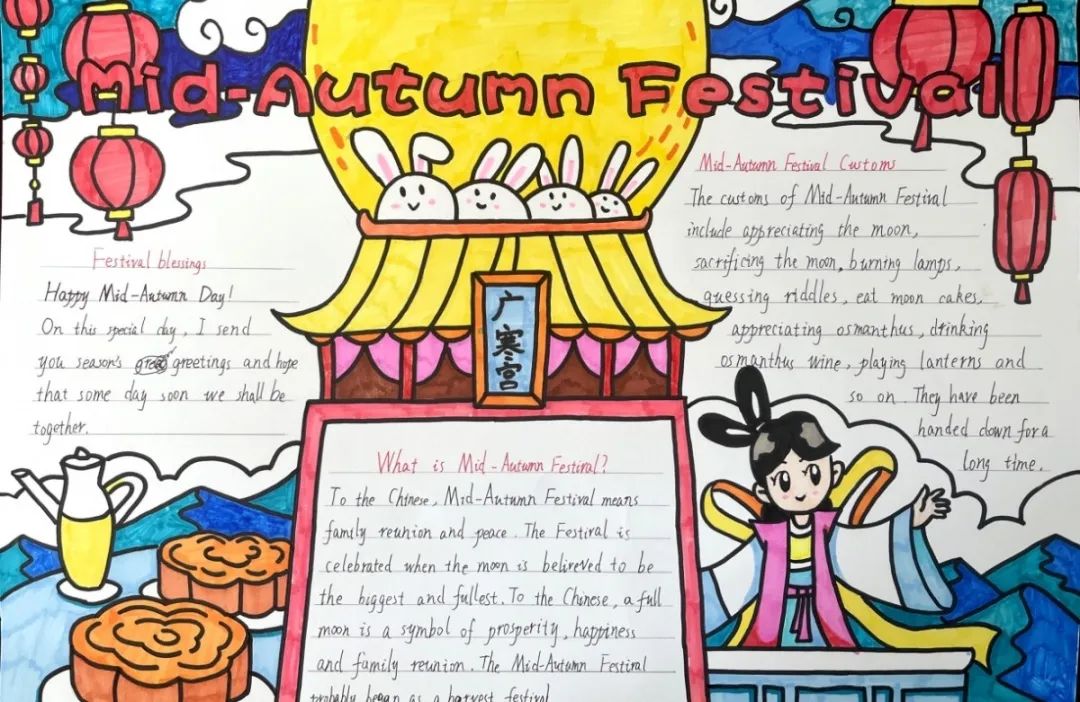 Mid-Autumn Festival
Festival blessings
Happy Mid-Autumn Day!
On this special day, I send
you season's greetings and hope
that some day soon we shall be
together.
广寒宫
What is Mid-Autumn Festival?
To the Chinese, Mid-Autumn Festival means
family reunion and peace. The Festival is
celebrated when the moon is believed to be
the biggest and fullest. To the Chinese, a full
moon is a symbol of prosperity, happiness
and family reunion. The Mid-Autumn Festival
probably began as a harvest festival
Mid-Autumn Festival Customs
The customs of Mid-Autumn Festival
include appreciating the moon,
sacrificing the moon, burning lamps,
guessing riddles, eat moon cakes,
appreciating osmanthus, drinking
osmanthus wine, playing lanterns and
so on. They have been
handed down for a
long time.